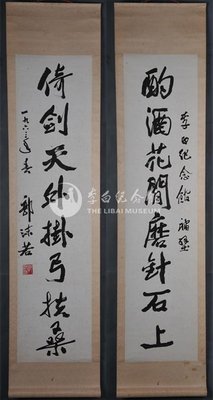 酌酒花間磨針石上
李白纪念館 補壁
倚劍天外掛弓扶桑
一九六三年春 郭沫若
李白纪念馆
THE LIBAI MUSEUM